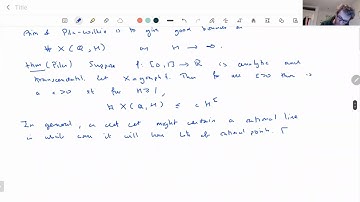 Aim of Pila-Wilkie is to give good bounds on
# X(Q, H) as H → ∞.
Thm (Pila) Suppose f: [0,1] → R is analytic and
transcendental. Let X = graph f. Then for all ε>0 there is
a c>0 st for H≥1,
# X(Q, H) ≤ c H^ε
In general, a set might contain a rational line
in which case it will have lots of rational points.